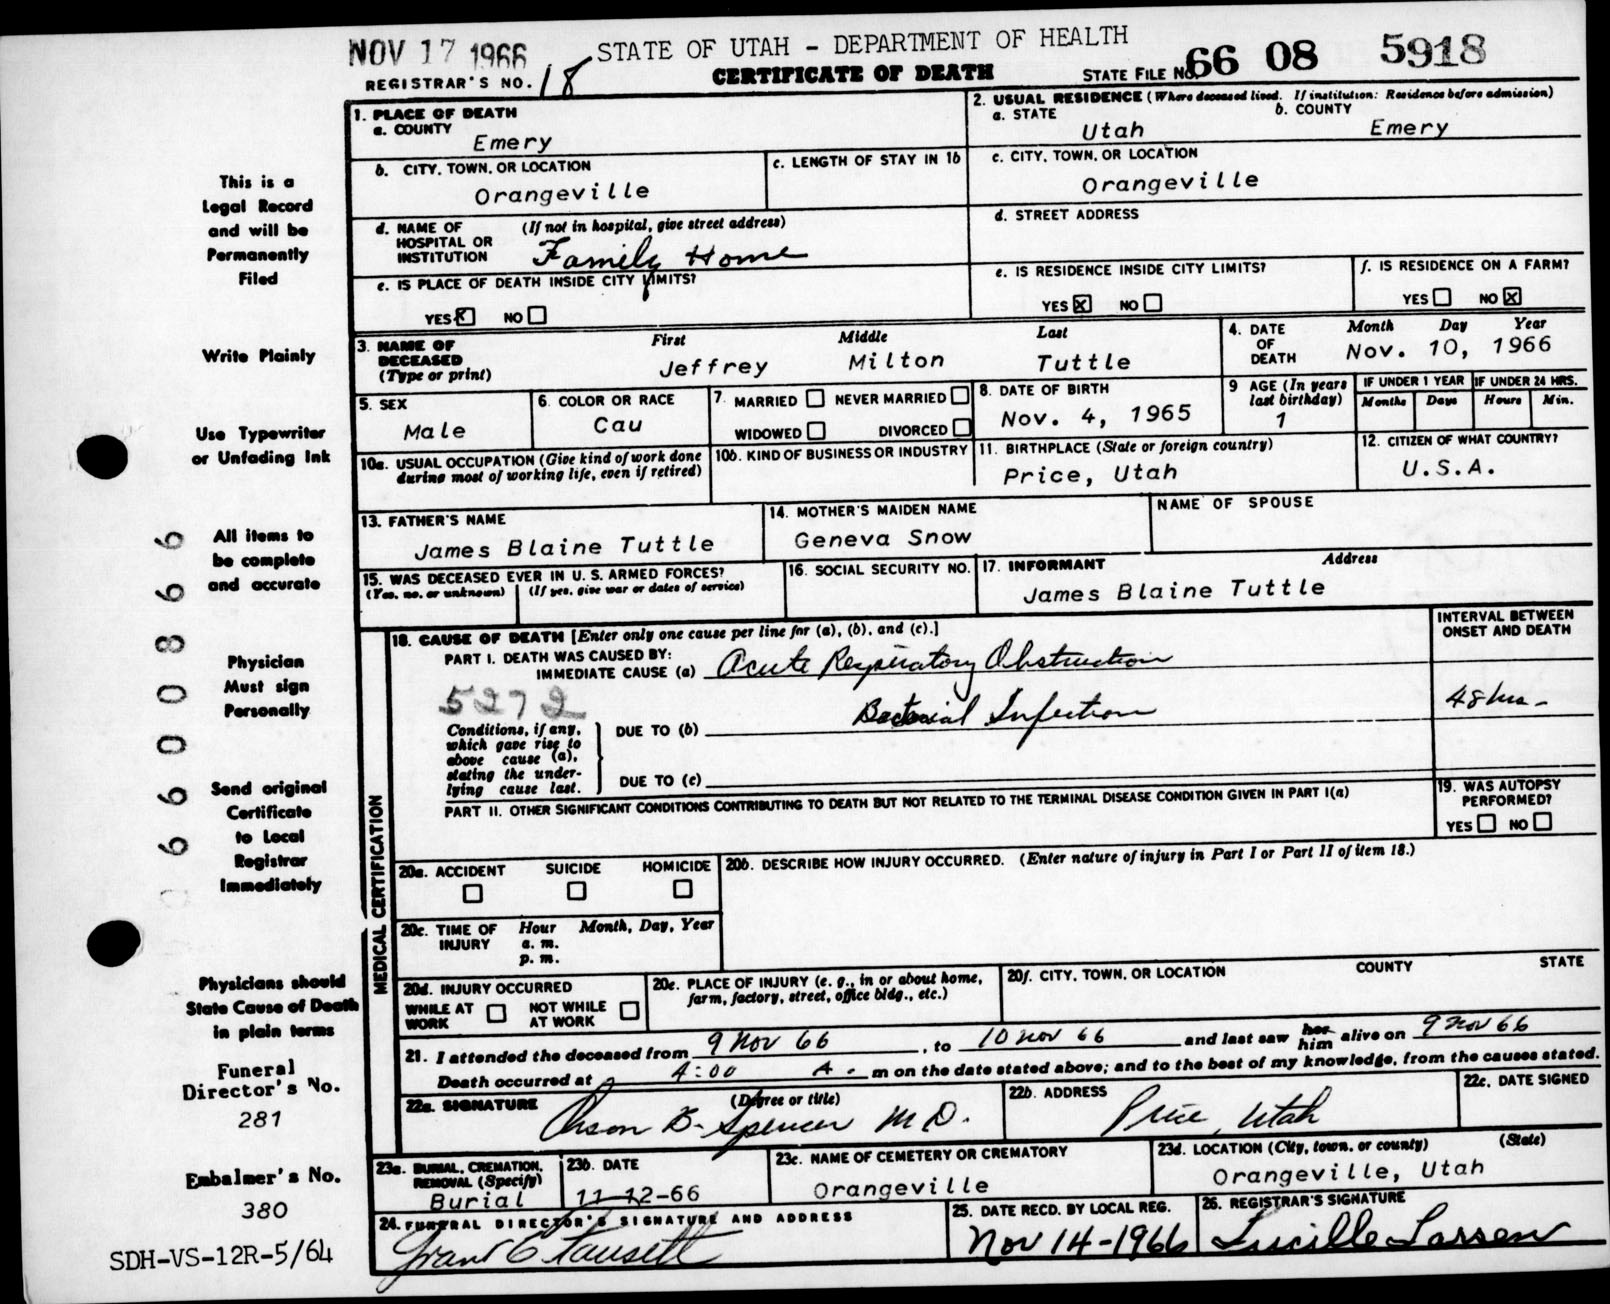 NOV 17 1966 STATE OF UTAH - DEPARTMENT OF HEALTH
REGISTRAR'S NO. 18 CERTIFICATE OF DEATH STATE FILE NO. 66 08 5918
1. PLACE OF DEATH
a. COUNTY
Emery
2. USUAL RESIDENCE (Where deceased lived. If institution: Residence before admission)
a. STATE b. COUNTY
Utah Emery
b. CITY, TOWN, OR LOCATION
Orangeville
c. LENGTH OF STAY IN 1b
c. CITY, TOWN, OR LOCATION
Orangeville
d. NAME OF HOSPITAL OR INSTITUTION (If not in hospital, give street address)
Family Home
d. STREET ADDRESS
e. IS PLACE OF DEATH INSIDE CITY LIMITS?
YES ☒ NO ☐
e. IS RESIDENCE INSIDE CITY LIMITS?
YES ☒ NO ☐
f. IS RESIDENCE ON A FARM?
YES ☐ NO ☒
3. NAME OF DECEASED (Type or print) First Middle Last
Jeffrey Milton Tuttle
4. DATE OF DEATH Month Day Year
Nov. 10, 1966
5. SEX
Male
6. COLOR OR RACE
Cau
7. MARRIED ☐ NEVER MARRIED ☐
WIDOWED ☐ DIVORCED ☐
8. DATE OF BIRTH
Nov. 4, 1965
9 AGE (In years last birthday)
1
IF UNDER 1 YEAR IF UNDER 24 HRS.
Months Days Hours Min.
10a. USUAL OCCUPATION (Give kind of work done during most of working life, even if retired)
10b. KIND OF BUSINESS OR INDUSTRY
11. BIRTHPLACE (State or foreign country)
Price, Utah
12. CITIZEN OF WHAT COUNTRY?
U.S.A.
13. FATHER'S NAME
James Blaine Tuttle
14. MOTHER'S MAIDEN NAME
Geneva Snow
NAME OF SPOUSE
15. WAS DECEASED EVER IN U. S. ARMED FORCES?
(Yes, no, or unknown) (If yes, give war or dates of service)
16. SOCIAL SECURITY NO.
17. INFORMANT Address
James Blaine Tuttle
MEDICAL CERTIFICATION
18. CAUSE OF DEATH [Enter only one cause per line for (a), (b), and (c).]
INTERVAL BETWEEN ONSET AND DEATH
PART I. DEATH WAS CAUSED BY:
IMMEDIATE CAUSE (a) Acute Respiratory Obstruction
5272
Conditions, if any, which gave rise to above cause (a), stating the underlying cause last.
DUE TO (b) Bacterial Infection 48 hrs-
DUE TO (c)
PART II. OTHER SIGNIFICANT CONDITIONS CONTRIBUTING TO DEATH BUT NOT RELATED TO THE TERMINAL DISEASE CONDITION GIVEN IN PART I(a)
19. WAS AUTOPSY PERFORMED?
YES ☐ NO ☐
20a. ACCIDENT SUICIDE HOMICIDE
☐ ☐ ☐
20b. DESCRIBE HOW INJURY OCCURRED. (Enter nature of injury in Part I or Part II of item 18.)
20c. TIME OF INJURY Hour Month, Day, Year
a. m.
p. m.
20d. INJURY OCCURRED
WHILE AT WORK ☐ NOT WHILE AT WORK ☐
20e. PLACE OF INJURY (e. g., in or about home, farm, factory, street, office bldg., etc.)
20f. CITY, TOWN, OR LOCATION COUNTY STATE
21. I attended the deceased from 9 Nov 66, to 10 Nov 66 and last saw her him alive on 9 Nov 66
Death occurred at 4:00 A. m on the date stated above; and to the best of my knowledge, from the causes stated.
22a. SIGNATURE (Degree or title)
Orson B. Spencer M D.
22b. ADDRESS
Price, Utah
22c. DATE SIGNED
23a. BURIAL, CREMATION, REMOVAL (Specify)
Burial
23b. DATE
11-12-66
23c. NAME OF CEMETERY OR CREMATORY
Orangeville
23d. LOCATION (City, town, or county) (State)
Orangeville, Utah
24. FUNERAL DIRECTOR'S SIGNATURE AND ADDRESS
Grant C Fausett
25. DATE RECD. BY LOCAL REG.
Nov 14-1966
26. REGISTRAR'S SIGNATURE
Lucille Larsen
This is a
Legal Record
and will be
Permanently
Filed
Write Plainly
Use Typewriter
or Unfading Ink
All items to
be complete
and accurate
Physician
Must sign
Personally
Send original
Certificate
to Local
Registrar
Immediately
Physicians should
State Cause of Death
in plain terms
Funeral
Director's No.
281
Embalmer's No.
380
SDH-VS-12R-5/64